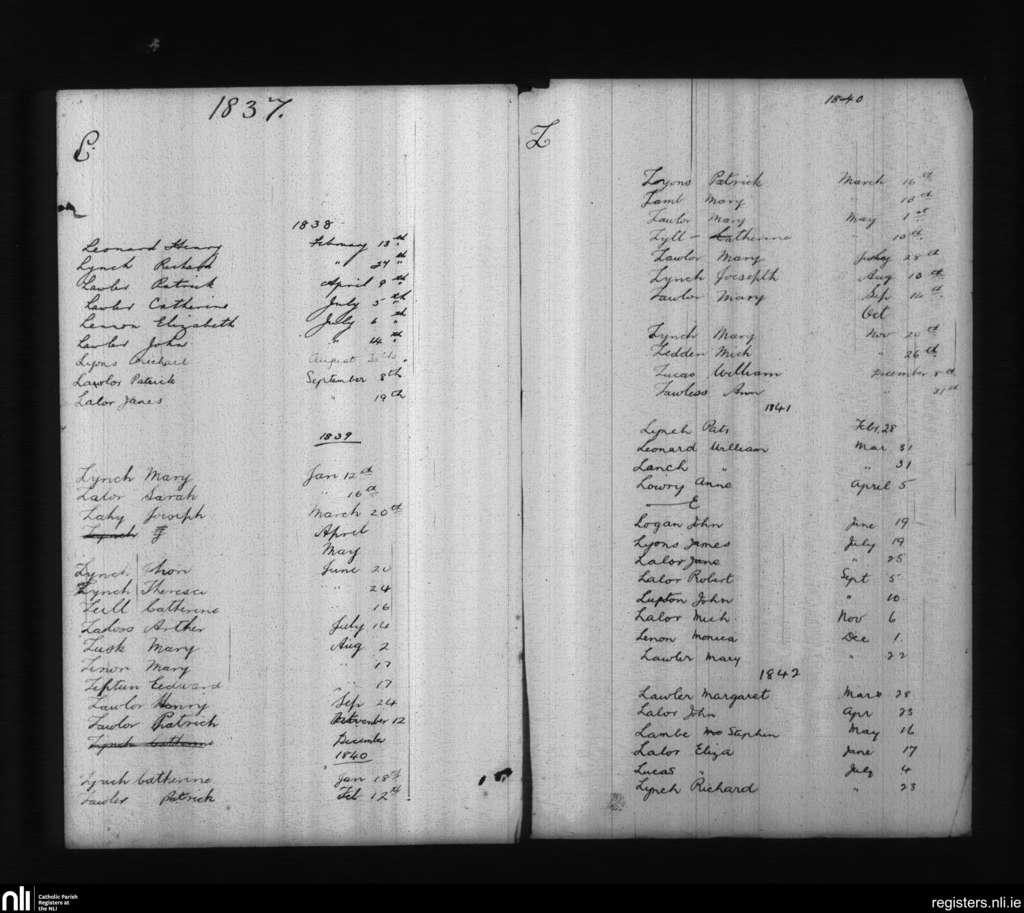 1837.
L.
1838
Leonard Henry February 13th
Lynch Richard " 27th
Lawler Patrick April 9th
Lawler Catherine July 5th
Lennon Elizabeth July 6th
Lawler John " 14th
Lyons Michael August
Lawlor Patrick September 8th
Lalor James " 19th
1839
Lynch Mary Jan 12th
Lalor Sarah " 16th
Lahy Joseph March 20th
Lynch April
May
Lynch June 20
Lynch Theresa " 24
Catherine " 16
Arther July 14
Lusk Mary Aug 2
Lenon Mary " 17
Edward " 17
Lawlor Henry Sep 24
Lawlor Patrick 12
Lynch Catherine December
1840
Lynch Catherine Jan 18th
Lawler Patrick Feb 12th
1840
L
Lyons Patrick March 16th
Lamb Mary " 18th
Lawlor Mary May 1st
Catherine " 10th
Lawlor Mary July 28th
Lynch Joeseph Aug 10th
Lawlor Mary Sep 14th
Oct
Lynch Mary Nov 20th
Ledden Mich " 26th
Lucas William December 8th
Lawless Ann " 31th
1841
Lynch Pat Feb. 28
Leonard William Mar 31
Lanch " " 31
Lowry Anne April 5
E
Logan John June 19
Lyons James July 19
Lalor Jane " 25
Lalor Robert Sept 5
Lupton John " 10
Lalor Mich Nov 6
Lenon Monica Dec 1.
Lawler Mary " 22
1842
Lawler Margaret Mar 28
Lalor John Apr 23
Lambe Stephen May 16
Lalor Eliza June 17
Lucas " July 4
Lynch Richard " 23
nli
Catholic Parish
Registers at
the NLI
registers.nli.ie